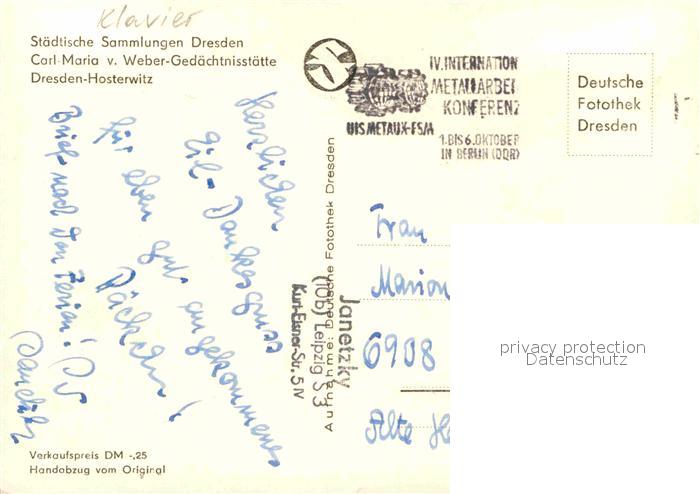 Klavier
Städtische Sammlungen Dresden
Carl Maria v. Weber-Gedächtnisstätte
Dresden-Hosterwitz
IV. INTERNATION
METALLARBEI
KONFERENZ
UIS METAUX-FSM
1. BIS 6. OKTOBER
IN BERLIN (DDR)
Deutsche
Fotothek
Dresden
Herzlichen
Eil-Dankesgruss
für eben gut angekommenes
Päckchen!
Brief nach den Ferien!
Aufnahme: Deutsche Fotothek Dresden
Janetzky
(10b) Leipzig S 3
Kurt-Eisner-Str. 5 IV
Frau
Marion
6908
Alte
privacy protection
Datenschutz
Verkaufspreis DM -,25
Handabzug vom Original